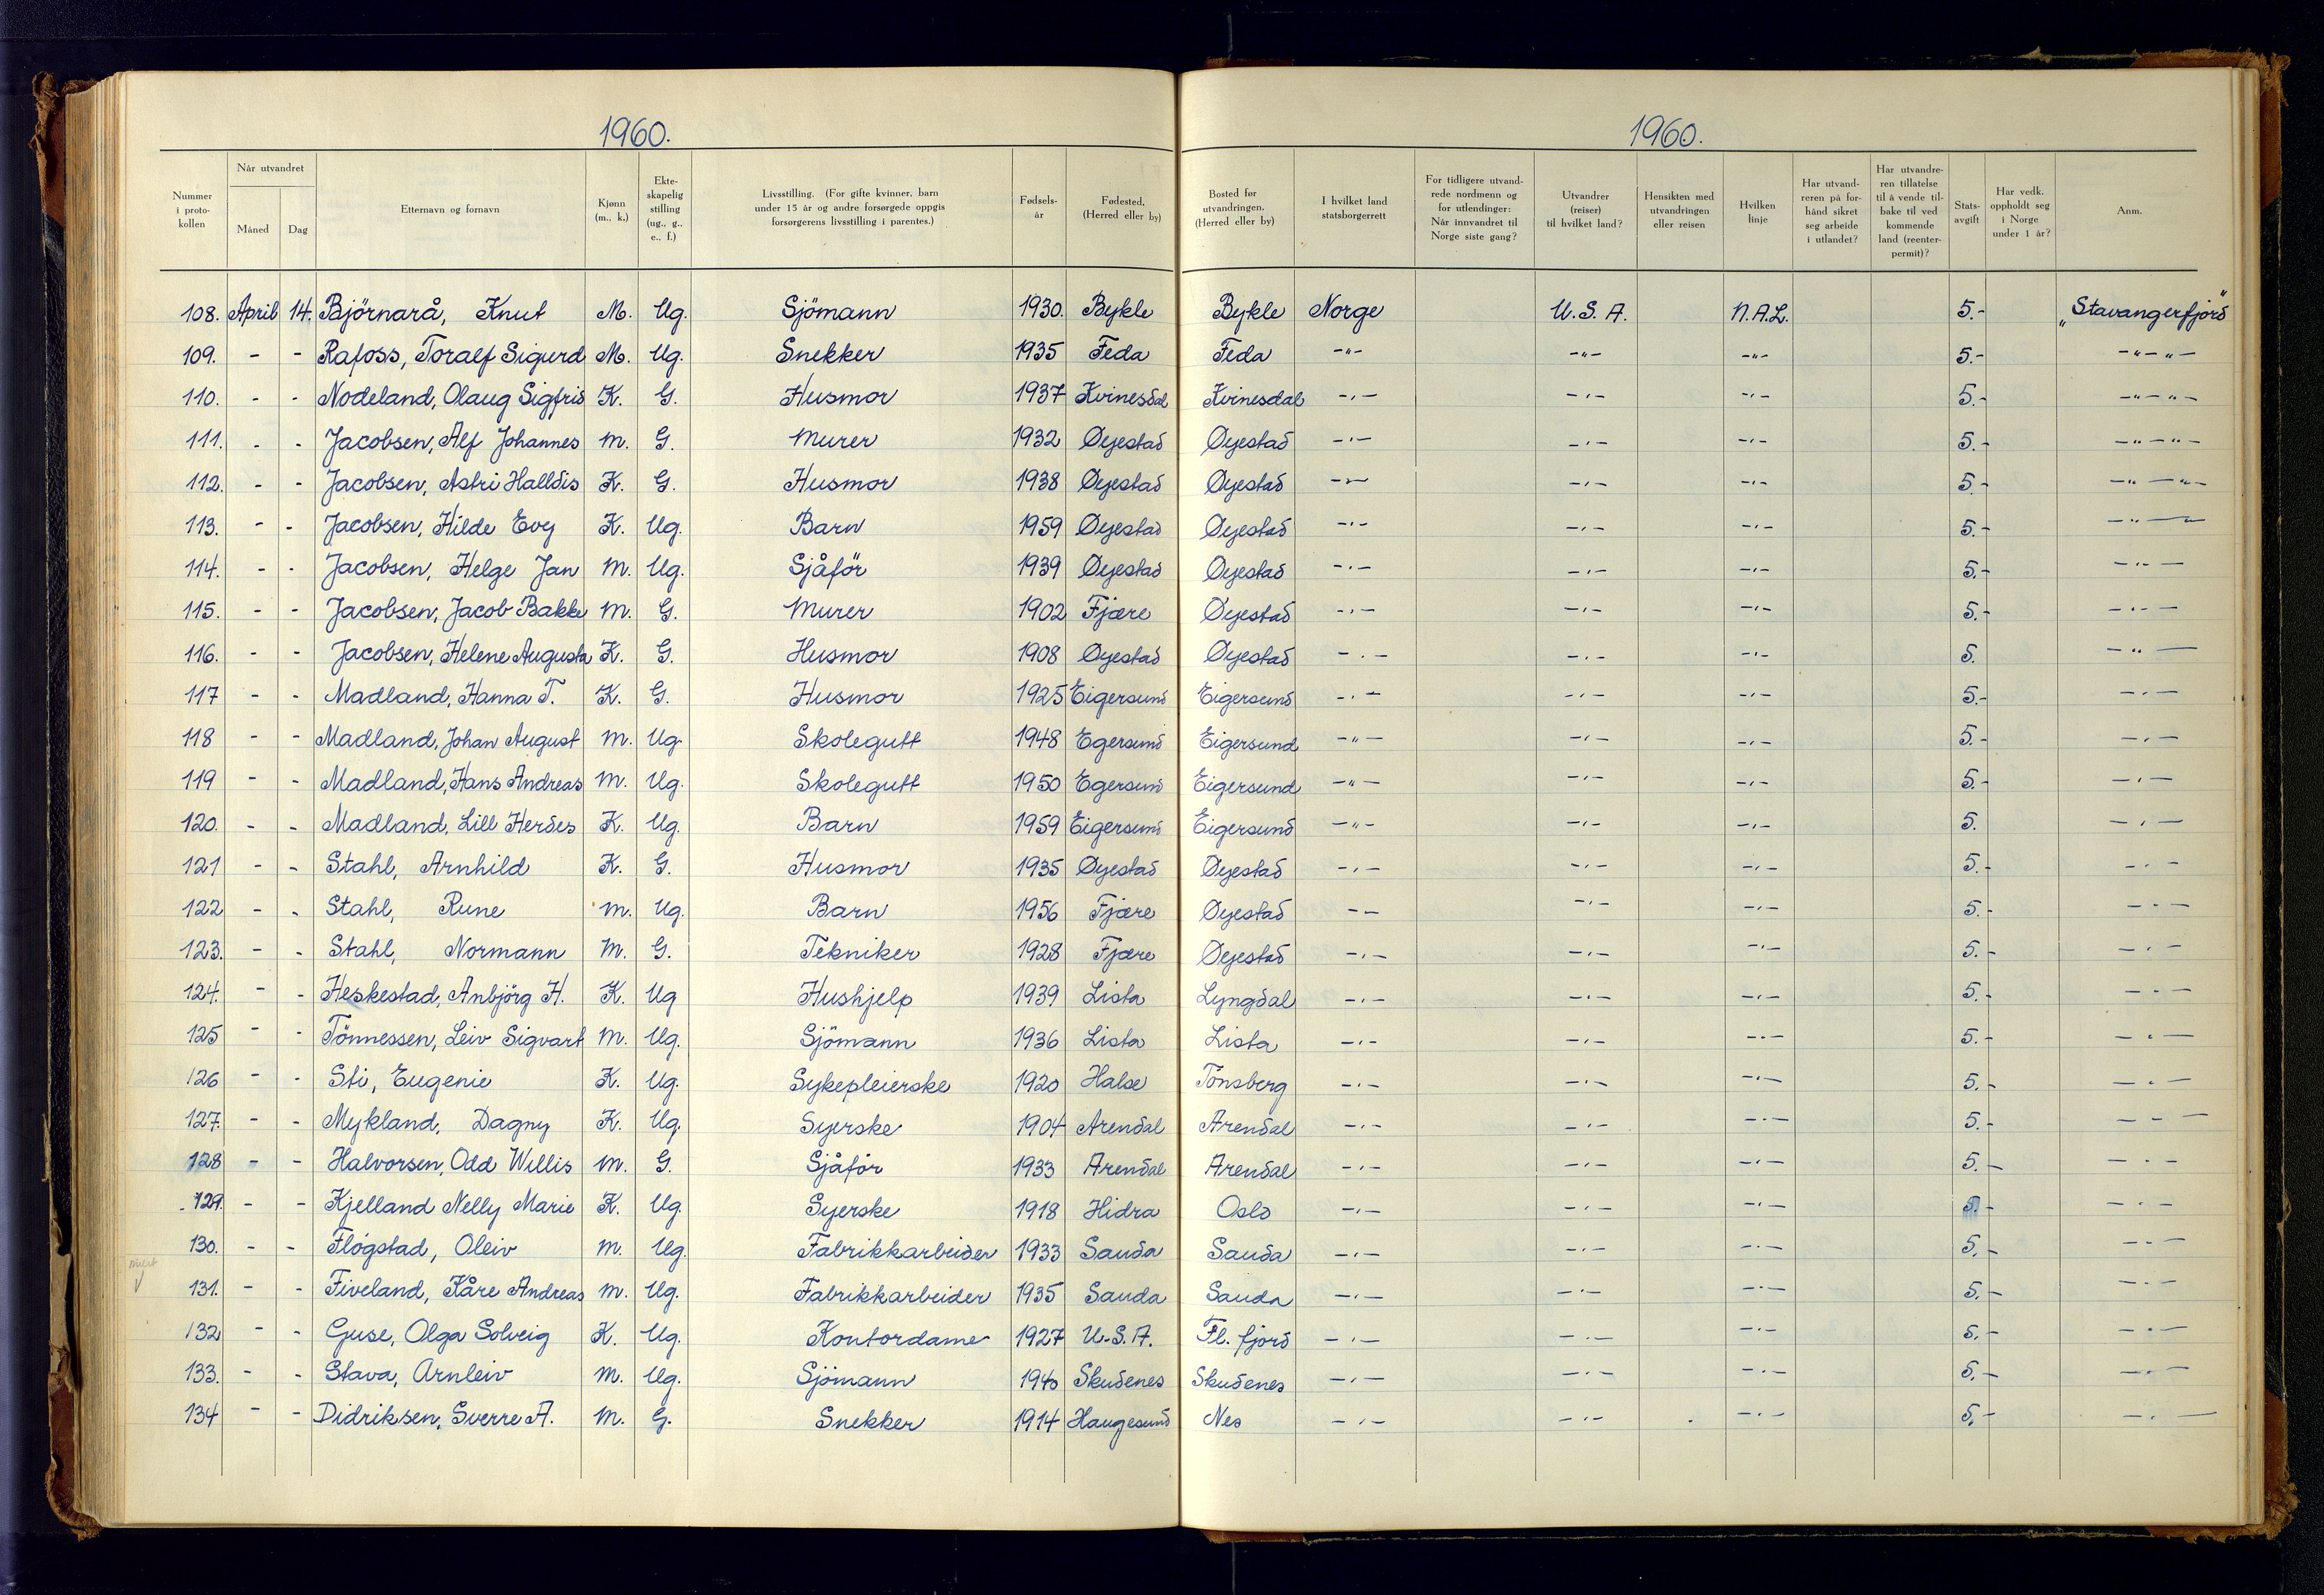 1960.
1960.
Nummer i protokollen | Når utvandret Måned | Dag | Etternavn og fornavn | Kjønn (m., k.) | Ekteskapelig stilling (ug., g., e., f.) | Livsstilling. (For gifte kvinner, barn under 15 år og andre forsørgede oppgis forsørgerens livsstilling i parentes.) | Fødselsår | Fødested. (Herred eller by) | Bosted før utvandringen. (Herred eller by) | I hvilket land statsborgerrett | For tidligere utvandrede nordmenn og for utlendinger: Når innvandret til Norge siste gang? | Utvandrer (reiser) til hvilket land? | Hensikten med utvandringen eller reisen | Hvilken linje | Har utvandreren på forhånd sikret seg arbeide i utlandet? | Har utvandreren tillatelse til å vende tilbake til ved kommende land (reenterpermit)? | Statsavgift | Har vedk. oppholdt seg i Norge under 1 år? | Anm.
108. April 14. Björnarå, Knut M. Ug. Sjömann 1930. Bykle Bykle Norge U.S.A. N.A.L. 5.- "Stavangerfjord"
109. - - Rafoss, Toralf Sigurd M. Ug. Snekker 1935 Feda Feda -"- -"- -"- 5.- -"-"-
110. - - Nodeland, Olaug Sigfrid K. G. Husmor 1937 Kvinesdal Kvinesdal -"- -"- -"- 5.- -"-"-
111. - - Jacobsen, Alf Johannes M. G. Murer 1932 Øyestad Øyestad -"- -"- -"- 5.- -"-"-
112. - - Jacobsen, Astri Halldis K. G. Husmor 1938 Øyestad Øyestad -"- -"- -"- 5.- -"-"-
113. - - Jacobsen, Hilde Evy K. Ug. Barn 1959 Øyestad Øyestad -"- -"- -"- 5.- -"-
114. - - Jacobsen, Helge Jan M. Ug. Sjåför 1939 Øyestad Øyestad -"- -"- -"- 5.- -"-
115. - - Jacobsen, Jacob Bakke M. G. Murer 1902 Fjære Øyestad -"- -"- -"- 5.- -"-
116. - - Jacobsen, Helene Augusta K. G. Husmor 1908 Øyestad Øyestad -"- -"- -"- 5. -"-
117 - - Madland, Hanna T. K. G. Husmor 1925 Eigersund Eigersund -"- -"- -"- 5.- -"-
118 - - Madland, Johan August M. Ug. Skolegutt 1948 Egersund Eigersund -"- -"- -"- 5.- -"-
119 - - Madland, Hans Andreas M. Ug. Skolegutt 1950 Egersund Eigersund -"- -"- -"- 5.- -"-
120. - - Madland, Lill Herdes K. Ug. Barn 1959 Eigersund Eigersund -"- -"- -"- 5. -"-
121 - - Stahl, Arnhild K. G. Husmor 1935 Øyestad Øyestad -"- -"- -"- 5.- -"-
122 - - Stahl, Rune M. Ug. Barn 1956 Fjære Øyestad -- -"- -"- 5.- -"-
123. - - Stahl, Normann M. G. Tekniker 1928 Fjære Øyestad -"- -"- -"- 5.- -"-
124. - - Heskestad, Anbjörg H. K. Ug Hushjelp 1939 Lista Lyngdal -"- -"- -"- 5.- -"-
125 - - Tönnessen, Leiv Sigvart M. Ug. Sjömann 1936 Lista Lista -"- -"- -"- 5.- -"-
126 - - Sti, Eugenie K. Ug. Sykepleierske 1920 Halse Tönsberg -"- -"- -"- 5.- -"-
127. - - Mykland, Dagny K. Ug. Syerske 1904 Arendal Arendal -"- -"- -"- 5.- -"-
128 - - Halvorsen, Odd Willis M. G. Sjåför 1933 Arendal Arendal -"- -"- -"- 5.- -"-
129. - - Kjelland Nelly Marie K. Ug. Syerske 1918 Hidra Oslo -"- -"- -"- 5.- -"-
130. - - Flögstad, Oleiv M. Ug. Fabrikkarbeider 1933 Sauda Sauda -"- -"- -"- 5.- -"-
131. - - Fiveland, Kåre Andreas M. Ug. Fabrikkarbeider 1935 Sauda Sauda -"- -"- -"- 5.- -"-
132 - - Guse, Olga Solveig K. Ug. Kontordame 1927 U.S.A. Fl. fjord -"- -"- -"- 5.- -"-
133. - - Stava, Arnleiv M. Ug. Sjömann 1940 Skudenes Skudenes -"- -"- -"- 5.- -"-
134 - - Didriksen, Sverre A. M. G. Snekker 1914 Haugesund Nes -"- -"- -"- 5.- -"-